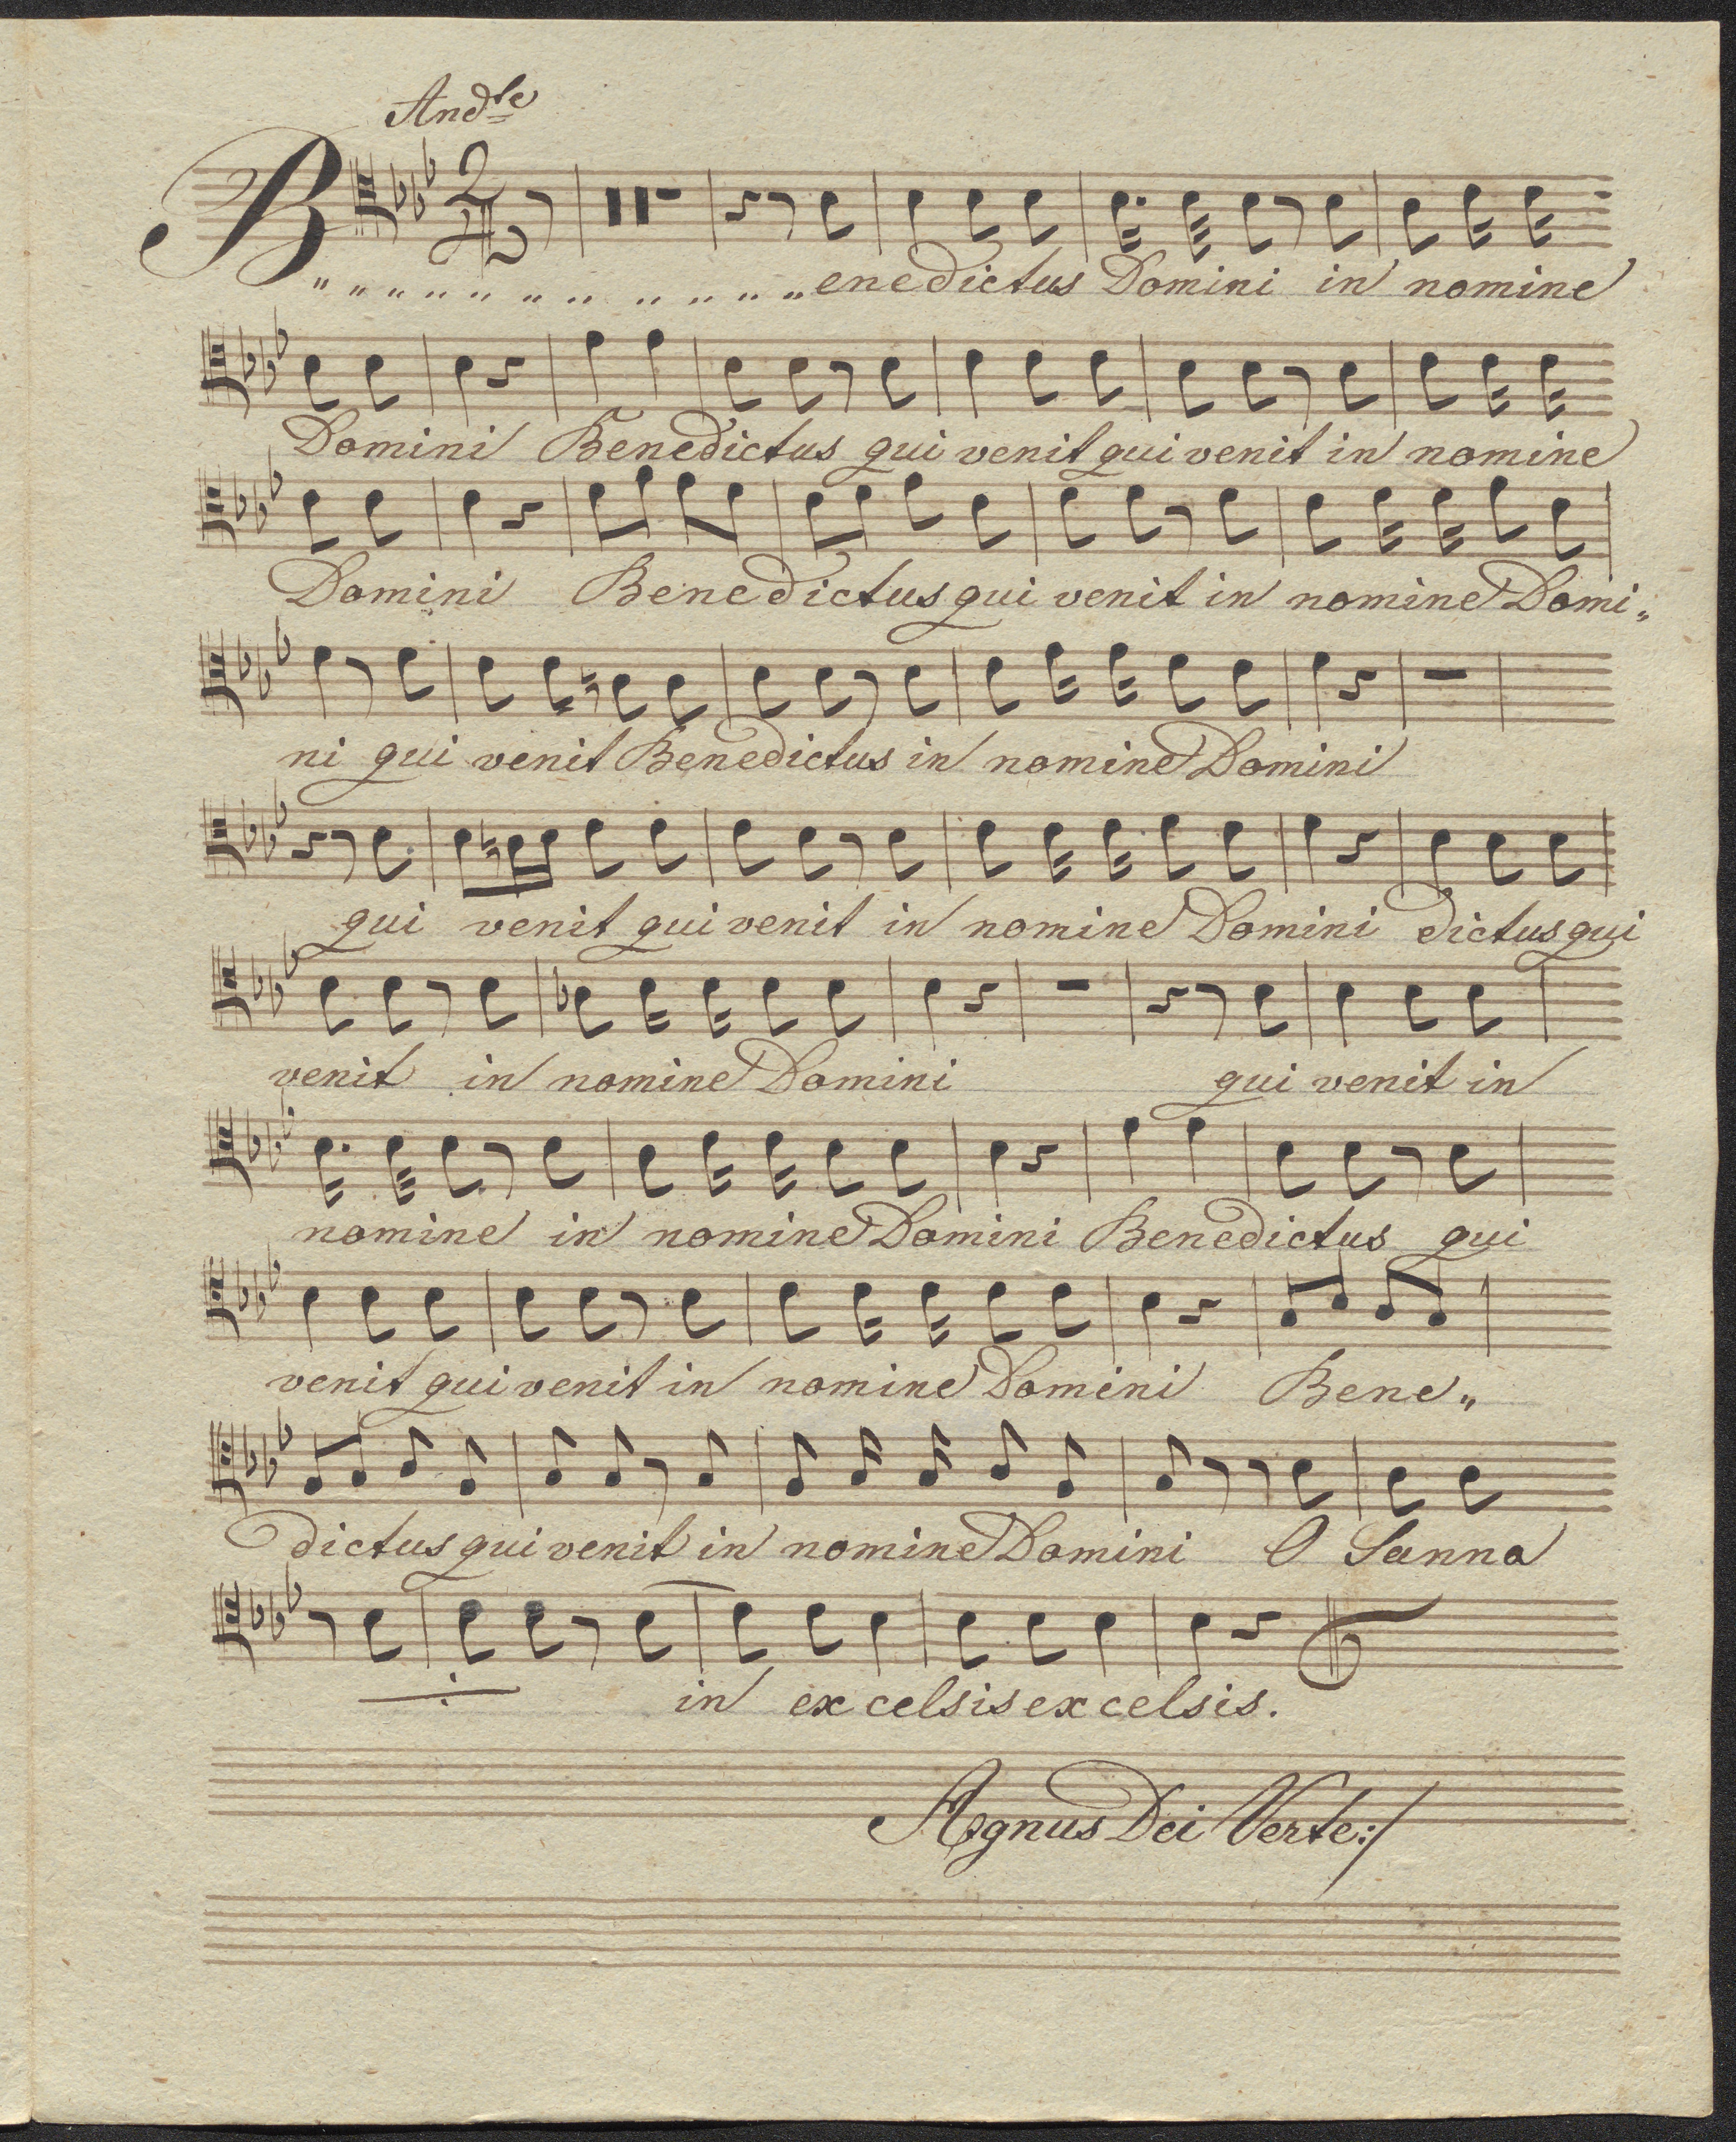 Andte
B „ „ „ „ „ „ „ „ „ „ „ enedictus Domini in nomine
Domini Benedictus qui venit qui venit in nomine
Domini Benedictus qui venit in nomine Domi„
ni qui venit Benedictus in nomine Domini
qui venit qui venit in nomine Domini dictus qui
venit in nomine Domini qui venit in
nomine in nomine Domini Benedictus qui
venit qui venit in nomine Domini Bene„
dictus qui venit in nomine Domini O Sanna
in excelsis excelsis.
Agnus Dei Verte:/